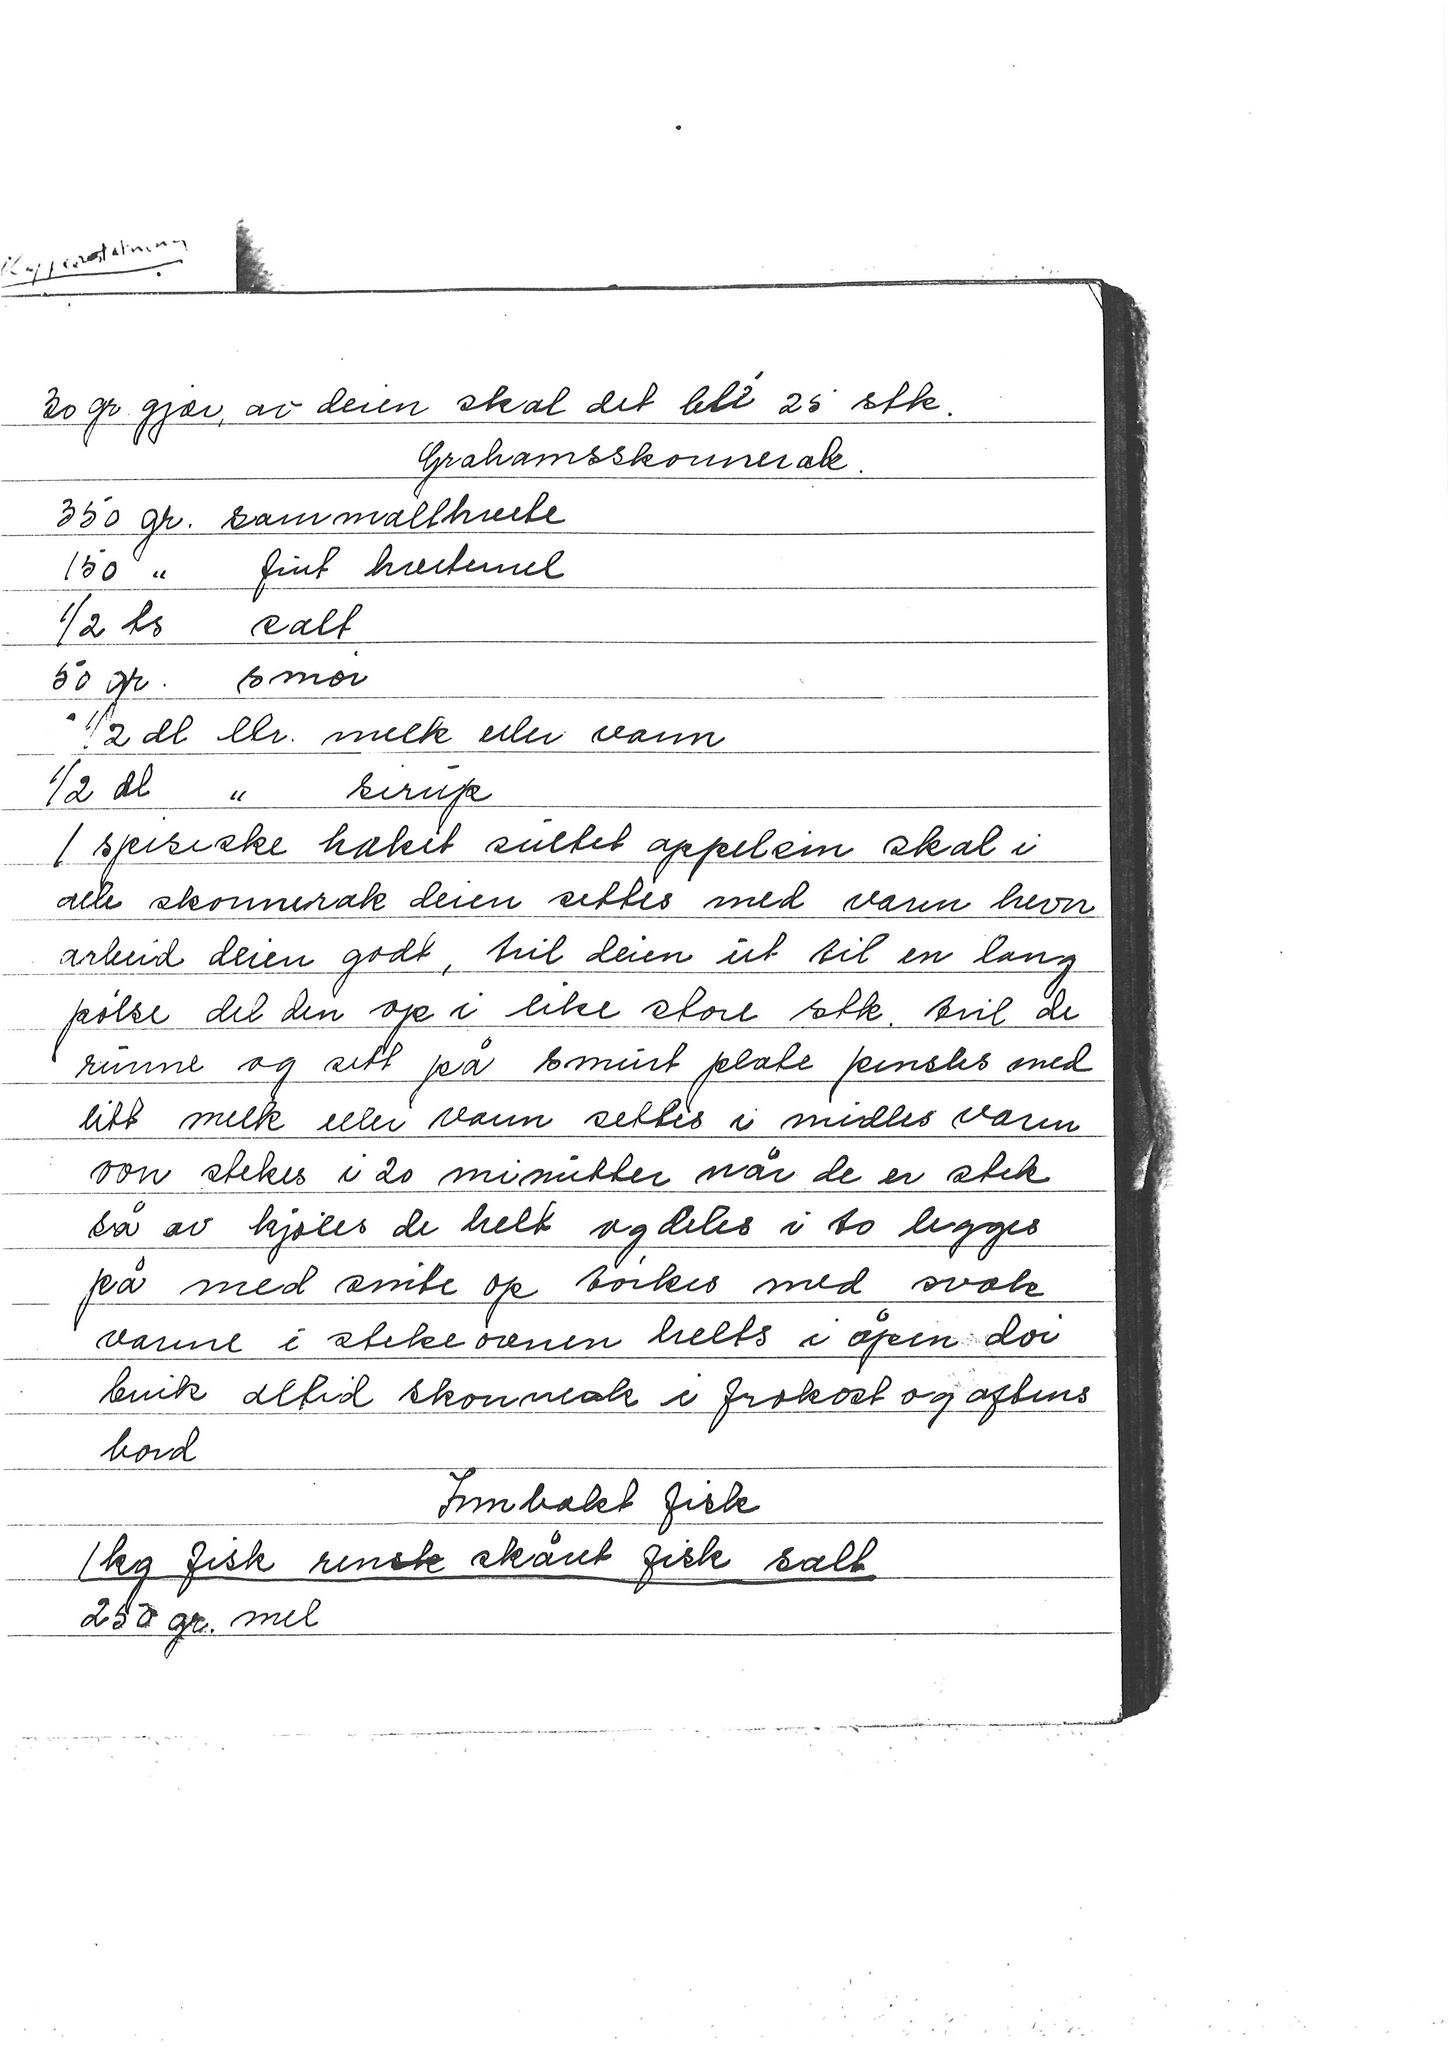 30 gr gjær, av deien skal det bli 25 stk.
Grahamsskonnerok.
350 gr. sammalthvete
150 " fint hvetemel
1/2 ts salt
50 gr. smør
1/2 dl ltr. melk eller vann
1/2 dl " sirup
1 spiseske haket sultet appelsin skal i
alle skonnerok deien settes med varm hevn
arbeid deien godt, tril deien ut til en lang
pølse del den op i like store stk. tril de
runne og sett på smurt plate pensles med
litt melk eller vann settes i midles varm
ovn stekes i 20 minutter når de er stek
så av kjøles de helt og deles i to legges
på med snite op tørkes med svak
varme i stekeovnen helts i åpen dør
bruk altid skonnrok i frokost og aftens
bord
Innbakt fisk
1 kg fisk rensk skåret fisk salt
250 gr. mel